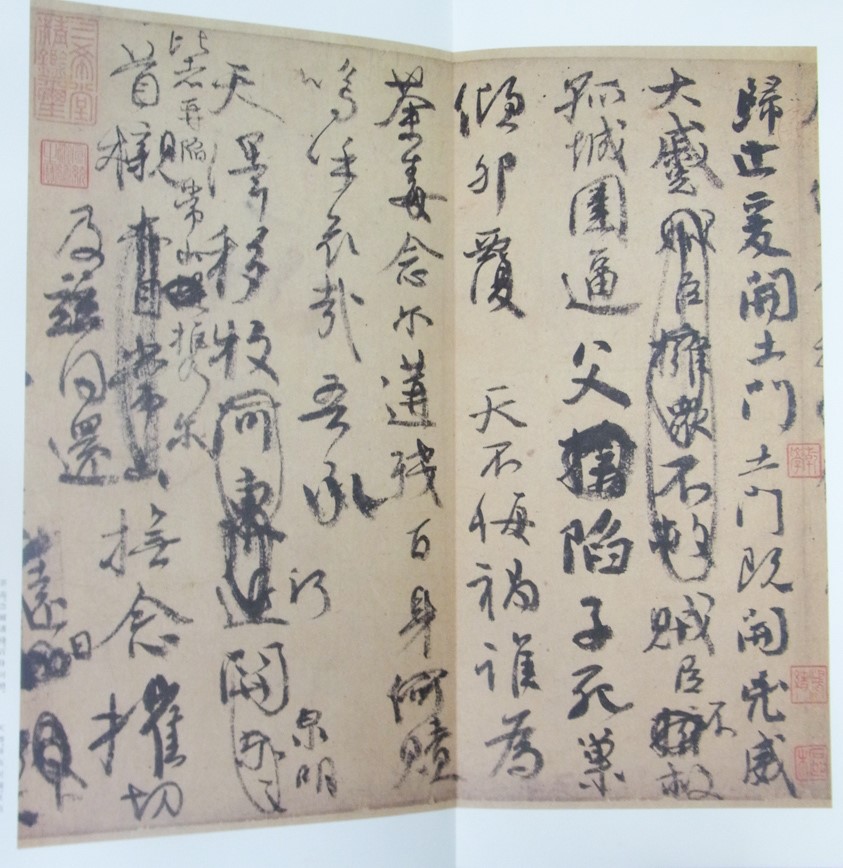 歸止爰開土門土門既開兇威
大蹙賊臣擁衆不救賊臣不救
孤城圍逼父陷子死巢
傾卵覆天不悔禍誰爲
荼毒念爾遘殘百身何贖
嗚呼哀哉吾承
天澤移牧河關
泉明
比者再陷常山携爾
首櫬亦自常山撫念摧切
及茲同還
遠日
三希堂精鑑璽